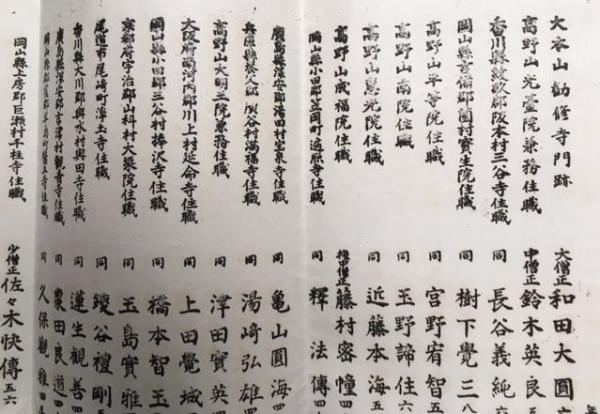 大本山勧修寺門跡 大僧正 和田大圓
高野山光臺院兼務住職 中僧正 鈴木英良
香川縣綾歌郡阪本村三谷寺住職 同 長谷義純 六
岡山縣吉備郡薗村寶生院住職 同 樹下覺三 八
高野山平等院住職 同 宮野宥智 五
高野山南院住職 同 玉野諦住 六
高野山慧光院住職 同 近藤本海 五
高野山成福院住職 權中僧正 藤村密幢 四
岡山縣小田郡笠岡町遍照寺住職 同 釋法傳 四
廣島縣深安郡湯田村寶泉寺住職 同 龜山圓海 四
兵庫縣養父郡谷村満福寺住職 同 湯崎弘雄 四
高野山大明王院兼務住職 同 津田實英 四
大阪府南河内郡川上村延命寺住職 同 上田覺城 四
岡山縣小田郡三谷村捧沢寺住職 同 橋本智玉
京都府宇治郡山科村院住職 同 玉島實雅 四
尾道市尾崎町浄土寺住職 同 鑁谷禮剛 五
香川縣大川郡與水村與田寺住職 同 蓮生観善 四
廣島縣深安郡吉津村觀音寺住職 同 田良道
岡山縣都窪郡早島町寺住職 同 久保觀雅 四
岡山縣上房郡巨瀬村千柱寺住職 少僧正 佐々木快傳 五六